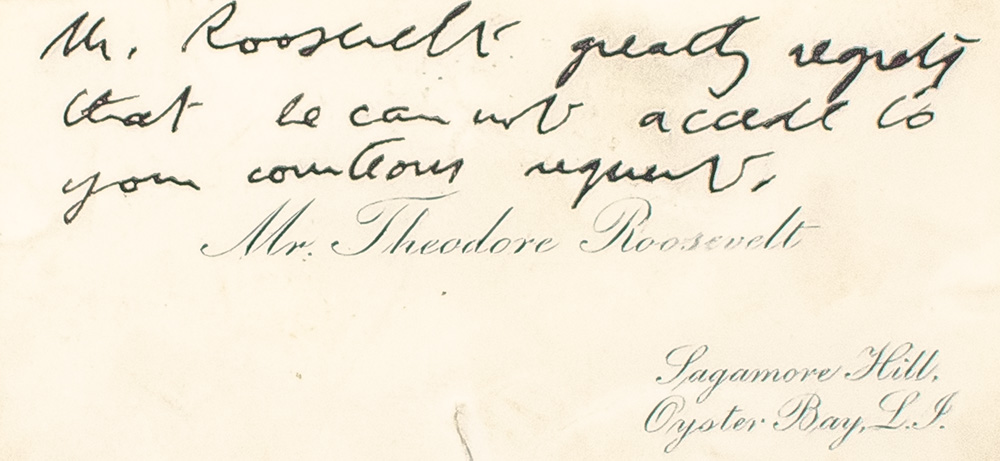 Mr. Roosevelt greatly regrets
that he can not accede to
your courteous request.
Mr. Theodore Roosevelt
Sagamore Hill,
Oyster Bay, L.I.